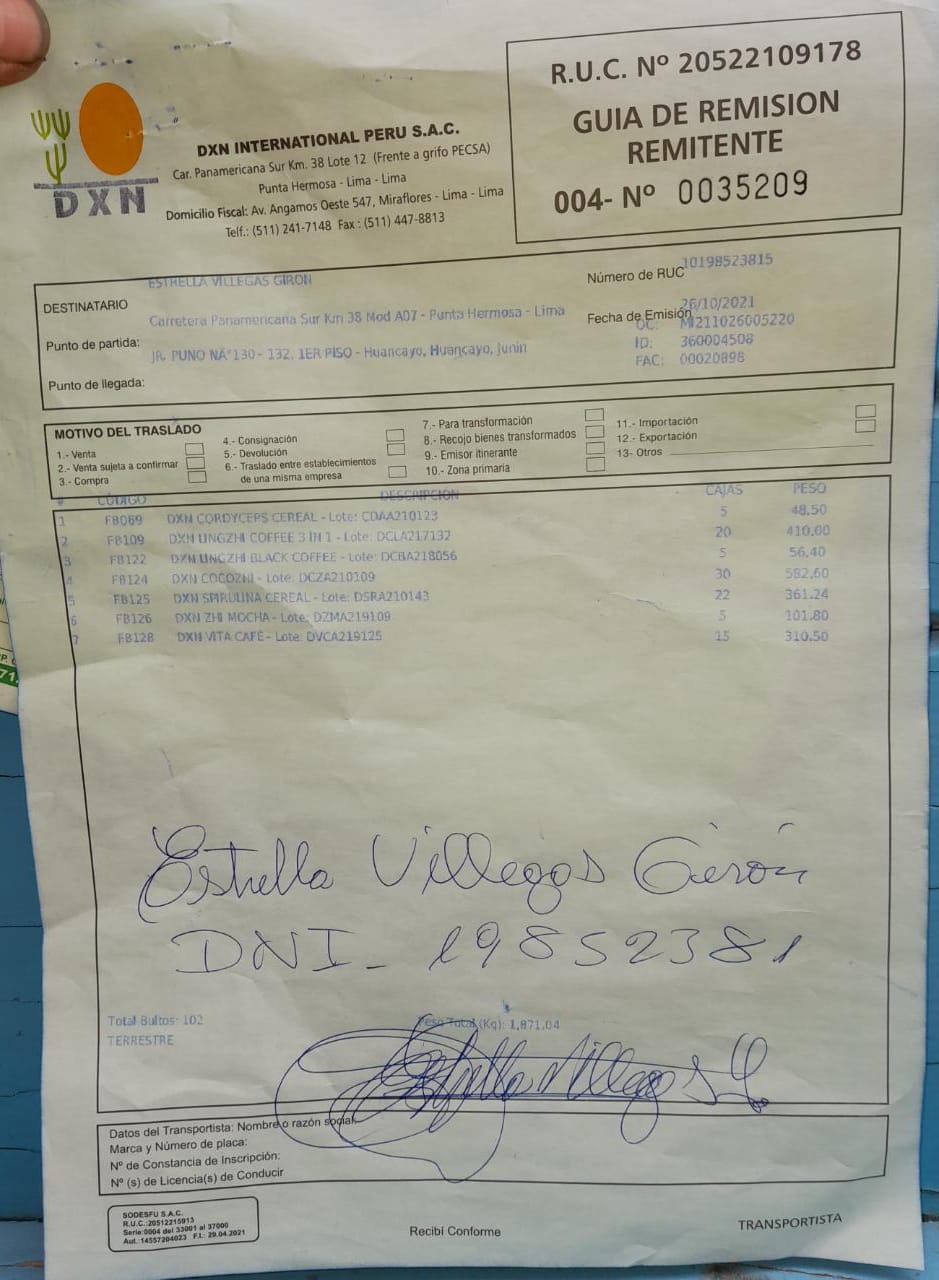 R.U.C. Nº 20522109178
GUIA DE REMISION
REMITENTE
004- Nº 0035209
DXN
DXN INTERNATIONAL PERU S.A.C.
Car. Panamericana Sur Km. 38 Lote 12 (Frente a grifo PECSA)
Punta Hermosa - Lima - Lima
Domicilio Fiscal: Av. Angamos Oeste 547, Miraflores - Lima - Lima
Telf.: (511) 241-7148 Fax : (511) 447-8813
ESTRELLA VILLEGAS GIRON
DESTINATARIO
Número de RUC 10198523815
Carretera Panamericana Sur Km 38 Mod A07 - Punta Hermosa - Lima
Punto de partida:
Fecha de Emisión 26/10/2021
OC: MI211026005220
JR. PUNO NÂ°130 - 132, 1ER PISO - Huancayo, Huancayo, Junin
ID: 360004508
Punto de llegada:
FAC: 00020898
MOTIVO DEL TRASLADO
1.- Venta
2.- Venta sujeta a confirmar
3.- Compra
4.- Consignación
5.- Devolución
6.- Traslado entre establecimientos
de una misma empresa
7.- Para transformación
8.- Recojo bienes transformados
9.- Emisor itinerante
10.- Zona primaria
11.- Importación
12.- Exportación
13- Otros
# CÓDIGO DESCRIPCION CAJAS PESO
1 FB069 DXN CORDYCEPS CEREAL - Lote: CDAA210123 5 48.50
2 FB109 DXN LINGZHI COFFEE 3 IN 1 - Lote: DCLA217132 20 410.00
3 FB122 DXN LINGZHI BLACK COFFEE - Lote: DCBA218056 5 56.40
4 FB124 DXN COCOZHI - Lote: DCZA210109 30 582.60
5 FB125 DXN SPIRULINA CEREAL - Lote: DSRA210143 22 361.24
6 FB126 DXN ZHI MOCHA - Lote: DZMA219109 5 101.80
7 FB128 DXN VITA CAFÉ - Lote: DVCA219125 15 310.50
Estrella Villegas Girón
DNI - 19852381
Total Bultos: 102 Peso Total (Kg): 1,871.04
TERRESTRE
Estrella Villegas G
Datos del Transportista: Nombre o razón social:
Marca y Número de placa:
Nº de Constancia de Inscripción:
Nº (s) de Licencia(s) de Conducir
SODESFU S.A.C.
R.U.C.:20512215913
Serie:0004 del 33001 al 37000
Aut.:14557204023 F.I.: 29.04.2021
Recibí Conforme
TRANSPORTISTA